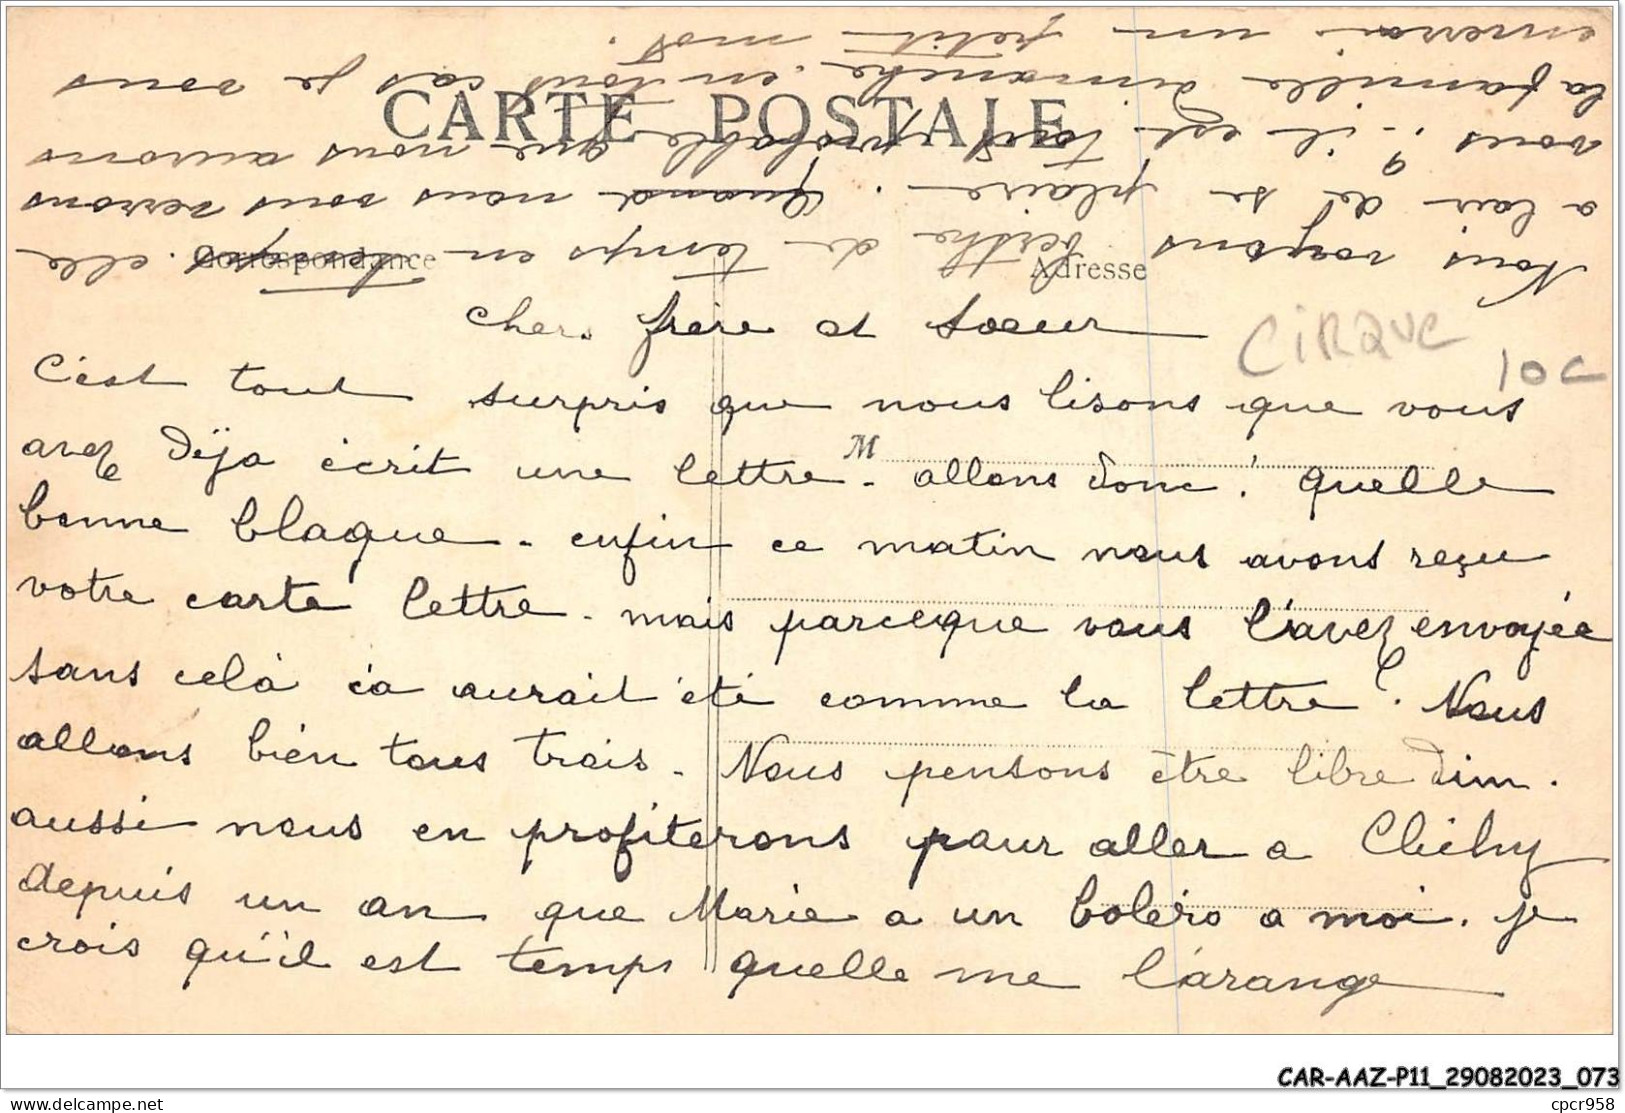 CARTE POSTALE
Correspondance
Adresse
M
CIRQUE
10 C
Chers frère et soeur
C'est tout surpris que nous lisons que vous
avez Dëja ècrit une lettre - allons donc ! quelle
bonne blague - enfin ce matin nous avons reçu
votre carte lettre - mais parceque vous l'avez envoyée
sans celà ca aurait été comme la lettre. Nous
allons bien tous trois - Nous pensons être libre dim.
aussi nous en profiterons pour aller a Clichy
depuis un an que Marie a un boléro a moi. je
crois qu'il est temps quelle me l'arange
Nous voyons berthe de temps en temps. elle
a lair de se plaire. Quand nous vous verrons
vous ? - il est tout probable que nous aurons
la famille dimanche. en tout cas je vous
enverrai un petit mot.
CAR-AAZ-P11_29082023_073
delcampe.net
cpcr958